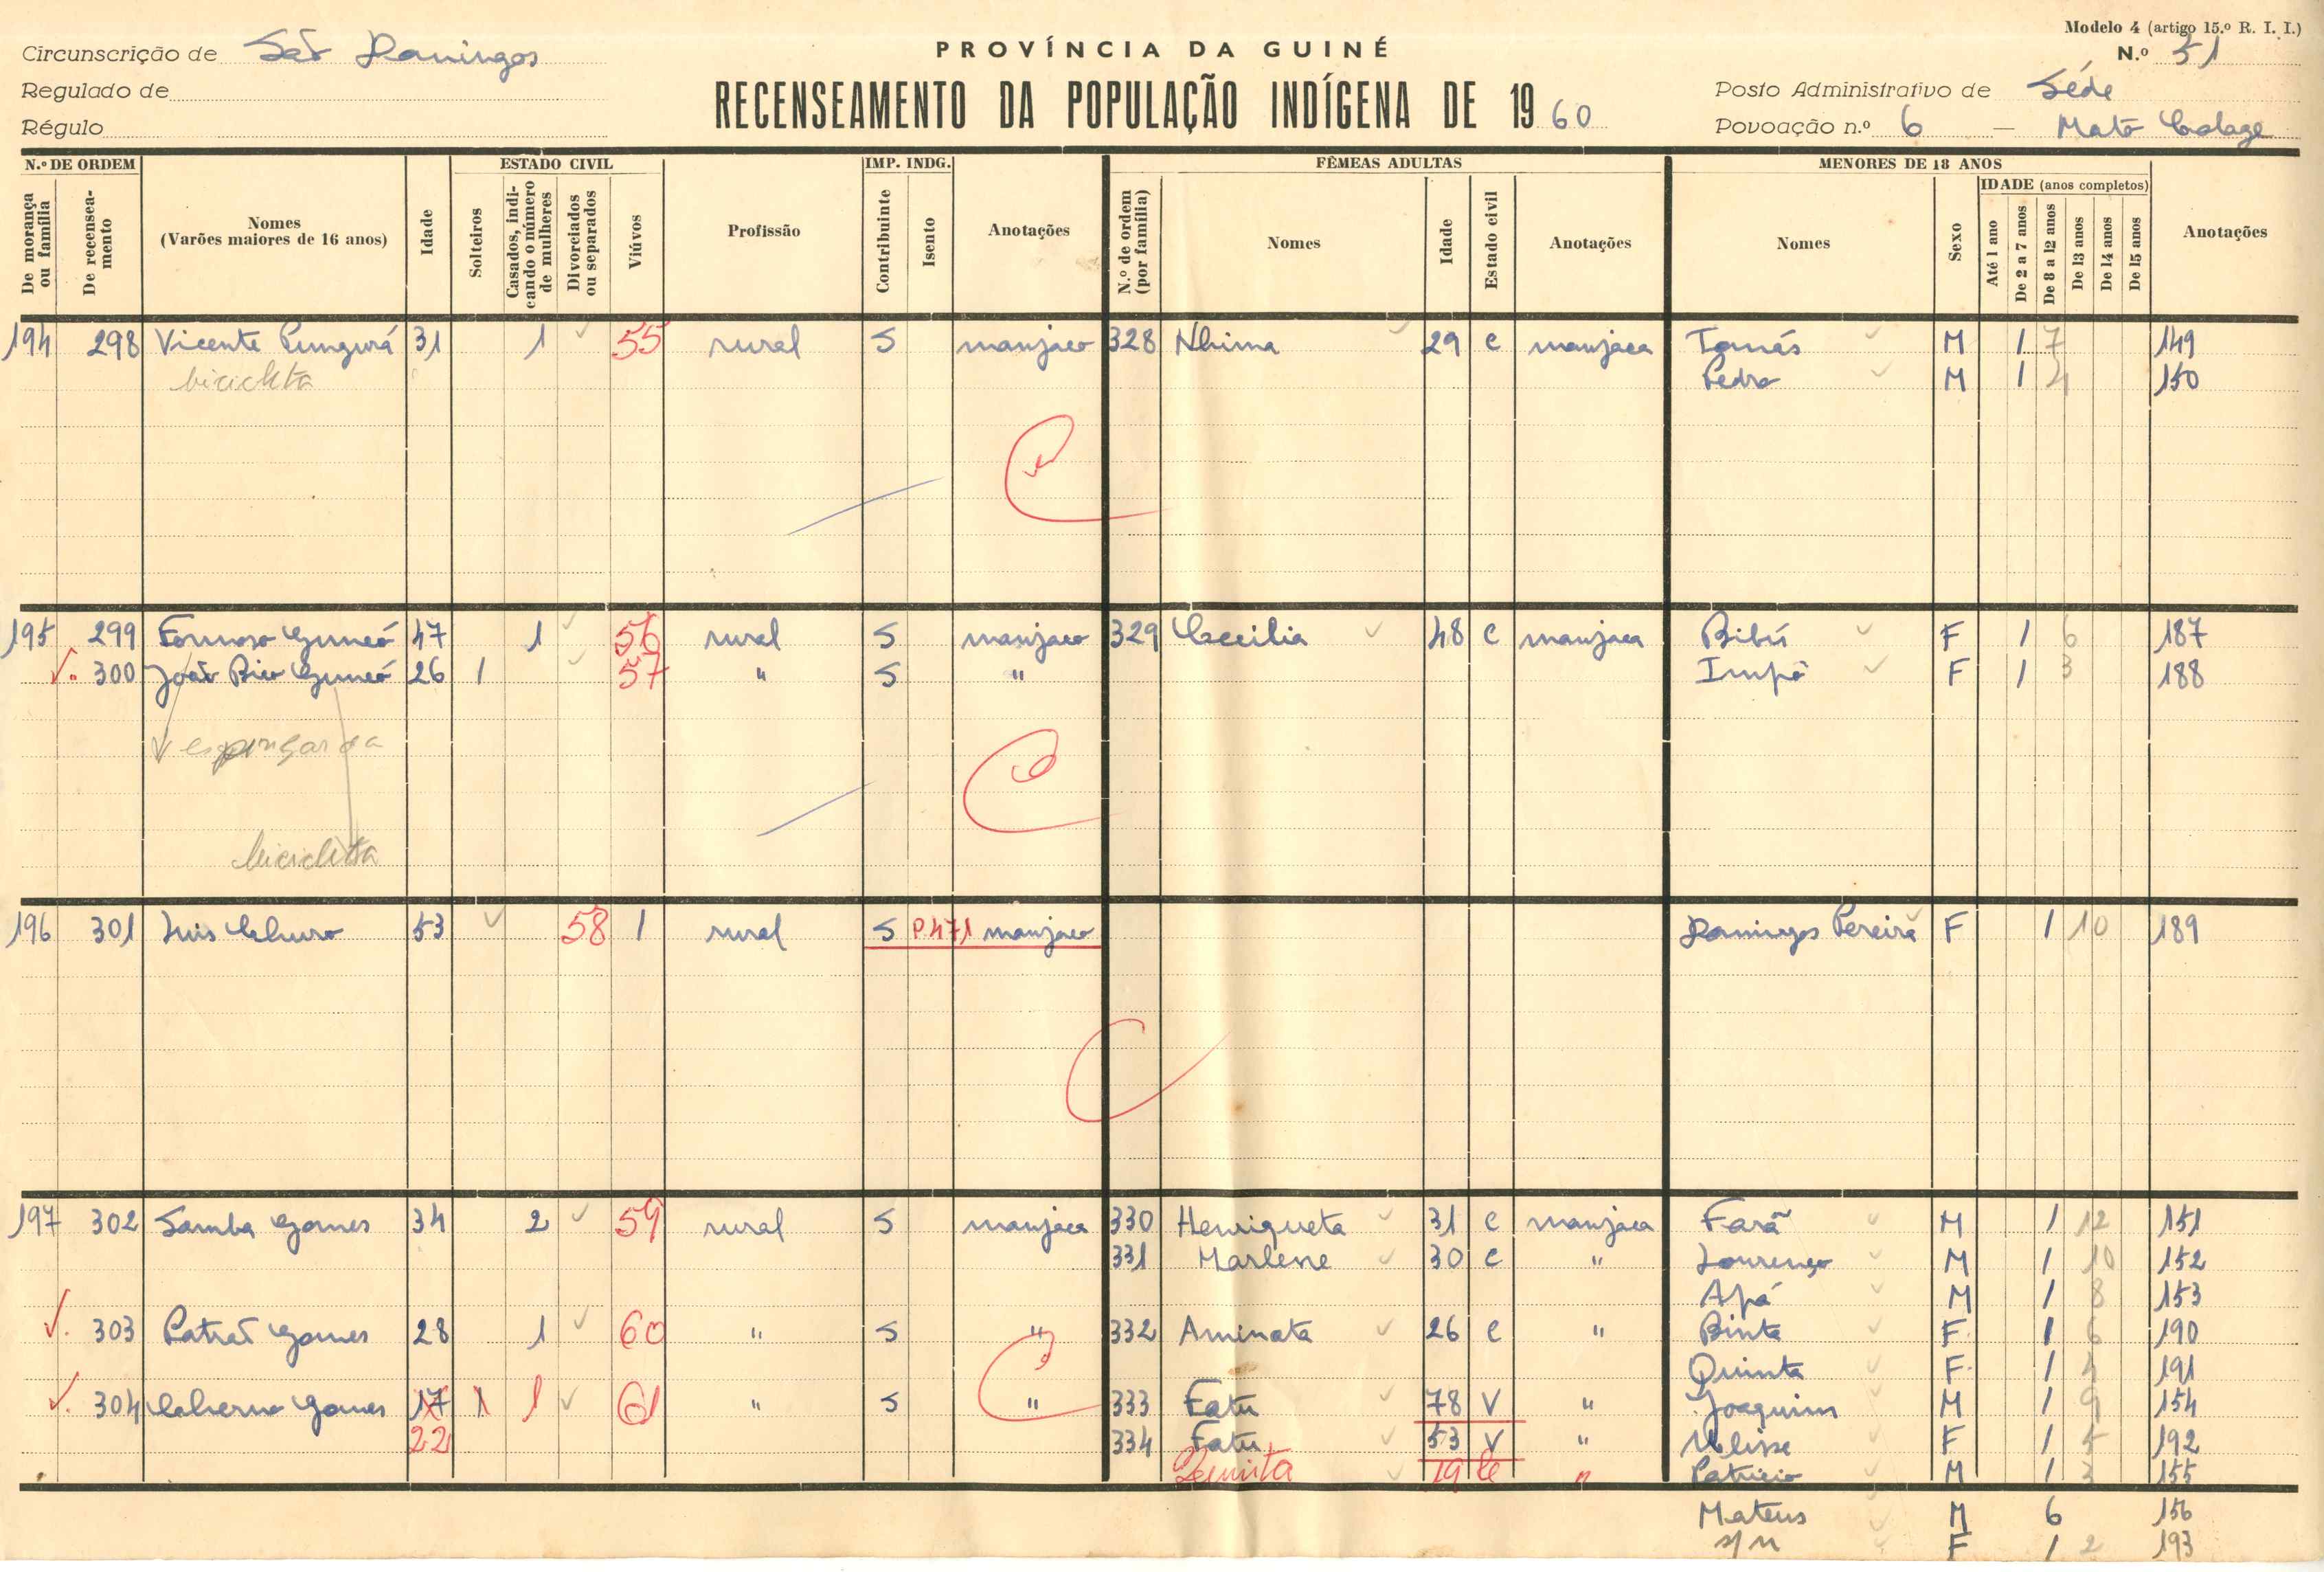 Modelo 4 (artigo 15.º R. I. I.)
Circunscrição de São Domingos
PROVÍNCIA DA GUINÉ
N.º 51
Regulado de
RECENSEAMENTO DA POPULAÇÃO INDÍGENA DE 1960
Posto Administrativo de Séde
Régulo
Povoação n.º 6 — Mato
N.º DE ORDEM ESTADO CIVIL IMP. INDG. FÊMEAS ADULTAS MENORES DE 18 ANOS
De morança ou família
De recensea-mento
Nomes
(Varões maiores de 16 anos)
Idade
Solteiros
Casados, indi-cando o número de mulheres
Divorciados ou separados
Viúvos
Profissão
Contribuinte
Isento
Anotações
N.º de ordem (por família)
Nomes
Idade
Estado civil
Anotações
Nomes
Sexo
IDADE (anos completos)
Até 1 ano
De 2 a 7 anos
De 8 a 12 anos
De 13 anos
De 14 anos
De 15 anos
Anotações
194 298 Vicente Pungurá 31 1 55 rural S manjaco 328 Nhima 29 C manjaca Tomás M 1 7 149
bicicleta Pedro M 1 4 150
195 299 Formoso Gomeó 47 1 56 rural S manjaco 329 Cecilia 48 C manjaca Bibí F 1 6 187
300 João Gomeó 26 1 57 " S " Impá F 1 3 188
espingarda
bicicleta
196 301 Luis 53 58 1 rural S P.471 manjaco Domingos Pereira F 1 10 189
197 302 Samba Gomes 34 2 59 rural S manjaca 330 Henriqueta 31 C manjaca Farã M 1 12 151
331 Marlene 30 C " Lourenço M 1 10 152
Apá M 1 8 153
303 Patrão Gomes 28 1 60 " S " 332 Aminata 26 C " Binta F 1 6 190
Quinta F 1 4 191
304 Gomes 17 1 1 61 " S " 333 Fatu 78 V " Joaquim M 1 9 154
22 334 Fatu 53 V " Ulisse F 1 5 192
19 C " Patricio M 1 3 155
Mateus M 6 156
s/n F 1 2 193